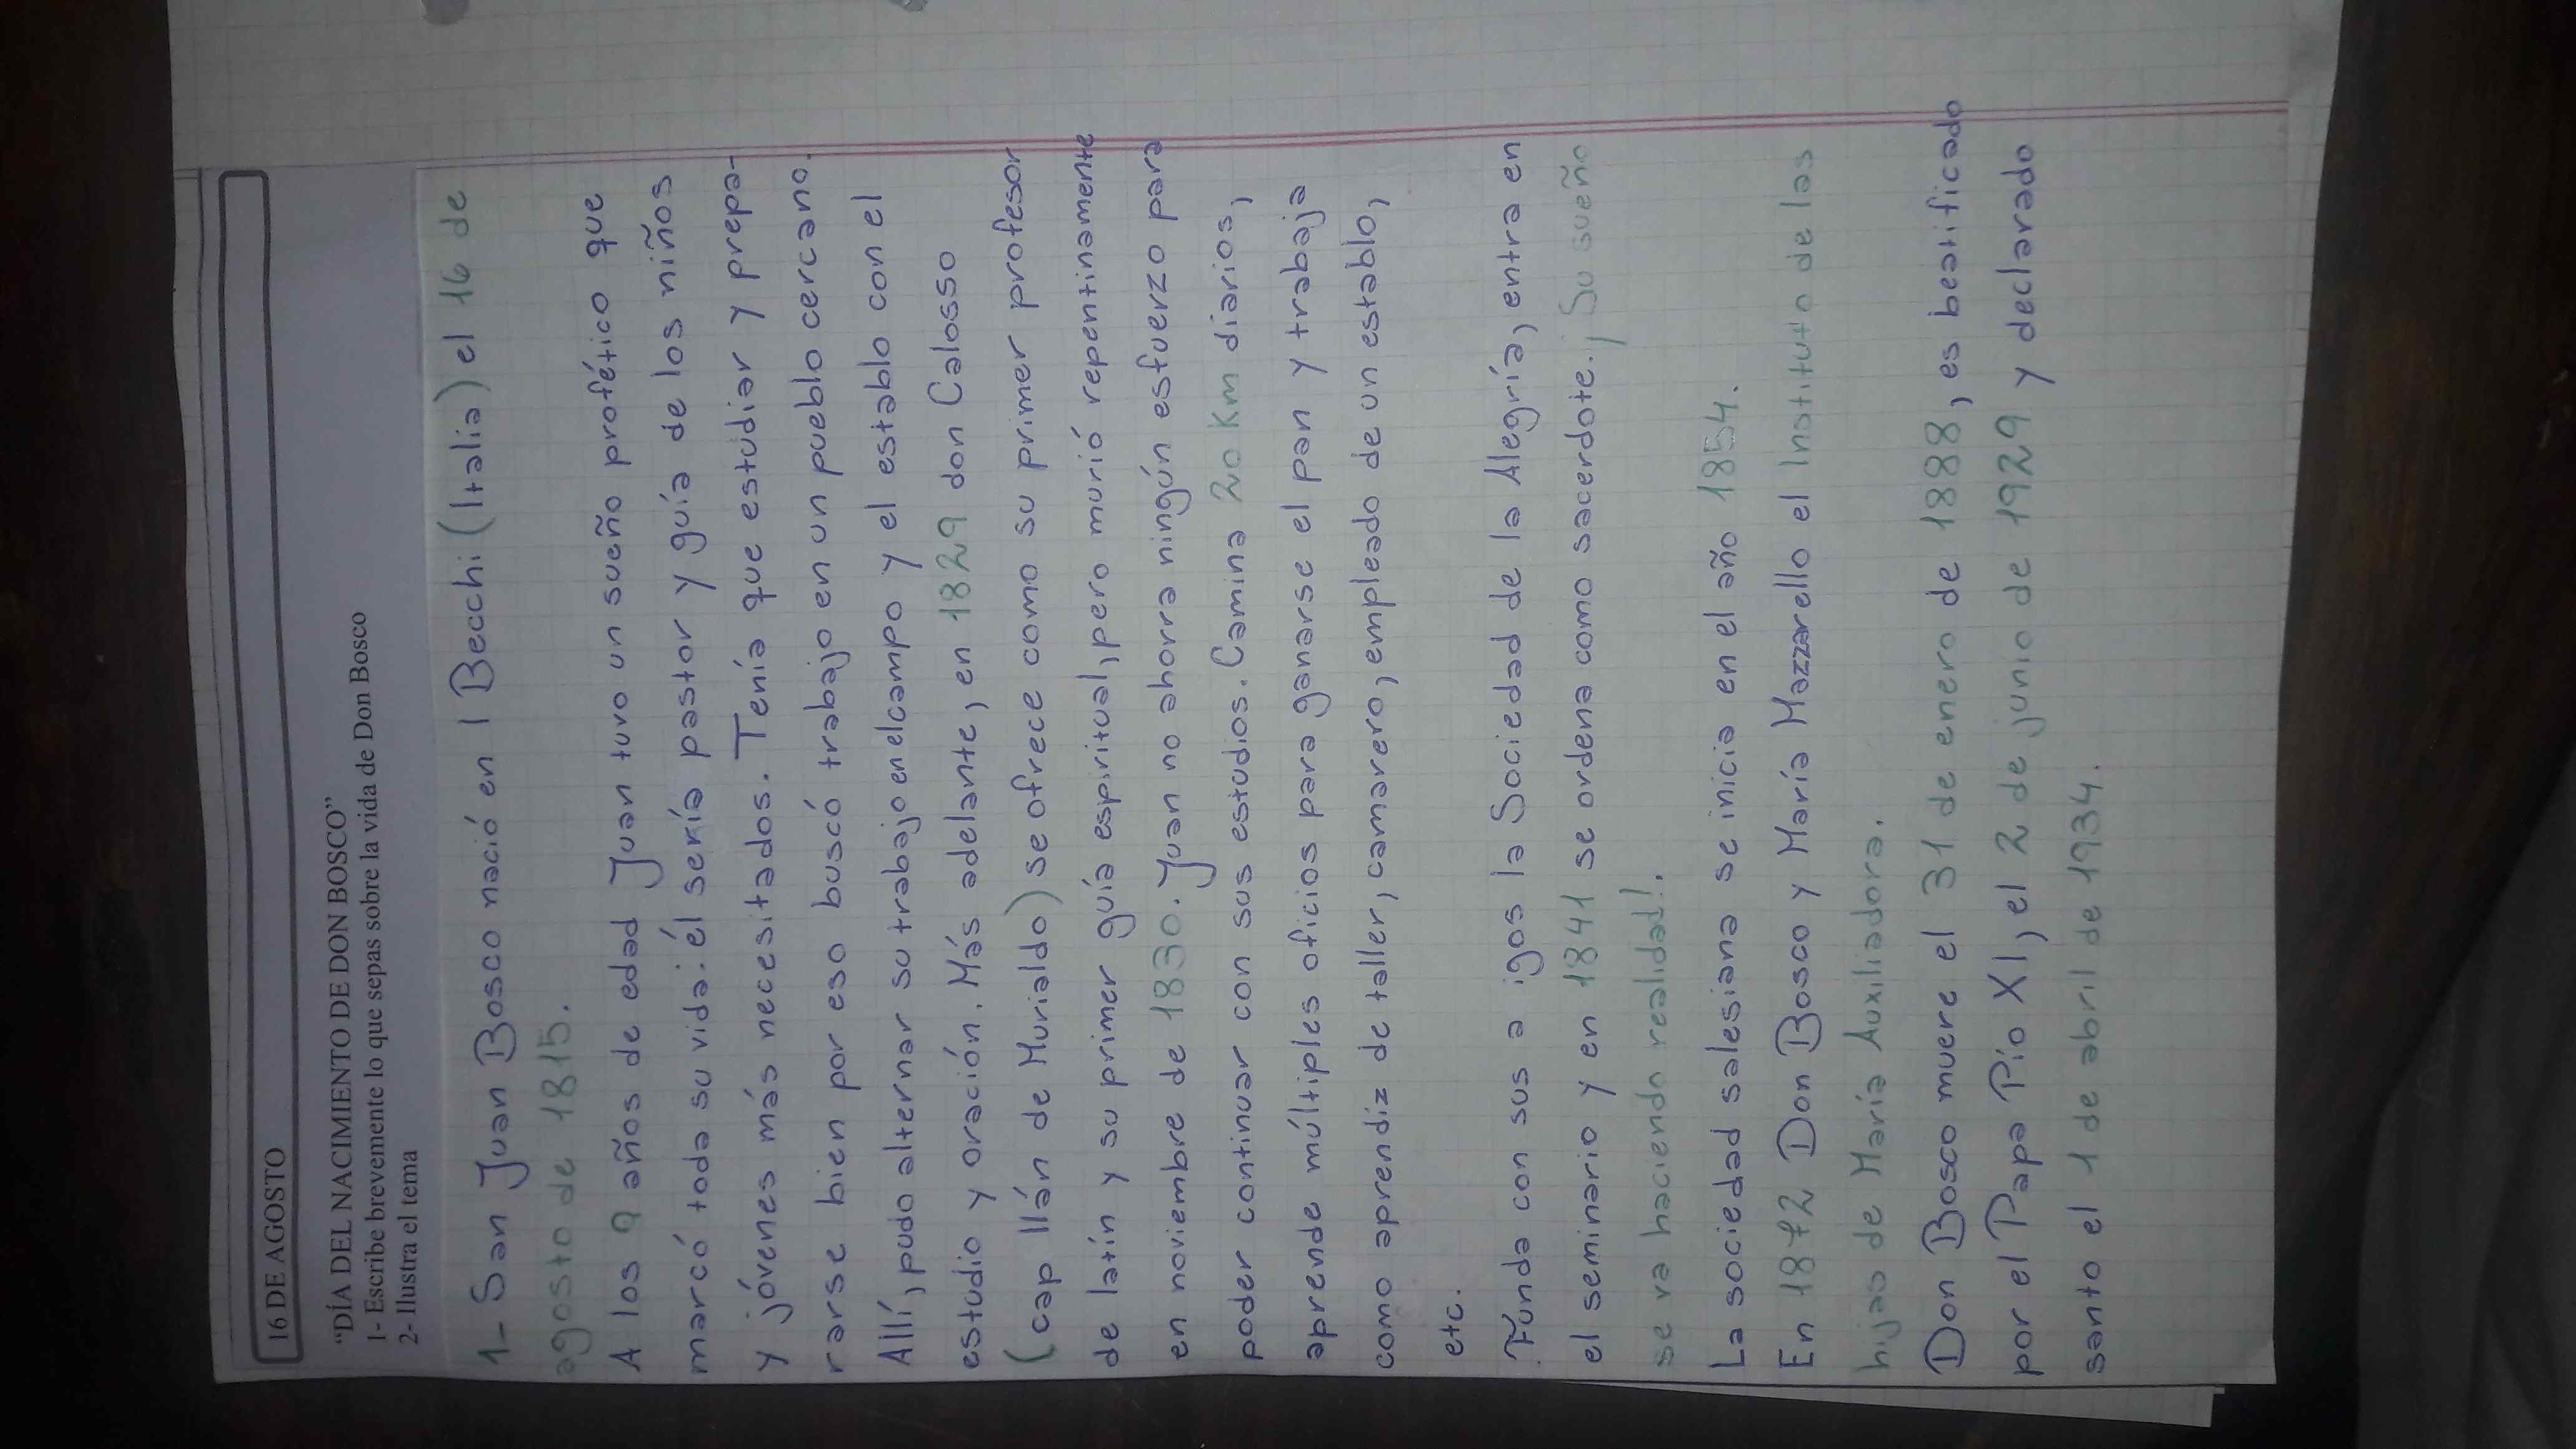 16 DE AGOSTO
“DÍA DEL NACIMIENTO DE DON BOSCO”
1- Escribe brevemente lo que sepas sobre la vida de Don Bosco
2- Ilustra el tema
1- San Juan Bosco nació en I Becchi (Italia) el 16 de
agosto de 1815.
A los 9 años de edad Juan tuvo un sueño profético que
marcó toda su vida: él sería pastor y guía de los niños
y jóvenes más necesitados. Tenía que estudiar y prepa-
rarse bien por eso buscó trabajo en un pueblo cercano.
Allí, pudo alternar su trabajo en el campo y el establo con el
estudio y oración. Más adelante, en 1829 don Calosso
(cap llán de Murialdo) se ofrece como su primer profesor
de latín y su primer guía espiritual, pero murió repentinamente
en noviembre de 1830. Juan no ahorra ningún esfuerzo para
poder continuar con sus estudios. Camina 20 Km diarios,
aprende múltiples oficios para ganarse el pan y trabaja
como aprendiz de taller, camarero, empleado de un establo,
etc.
Funda con sus a igos la Sociedad de la Alegría, entra en
el seminario y en 1841 se ordena como sacerdote. ¡Su sueño
se va haciendo realidad!.
La sociedad salesiana se inicia en el año 1854.
En 1872 Don Bosco y María Mazzarello el Instituto de las
hijas de María Auxiliadora.
Don Bosco muere el 31 de enero de 1888, es beatificado
por el Papa Pío XI, el 2 de junio de 1929 y declarado
santo el 1 de abril de 1934.